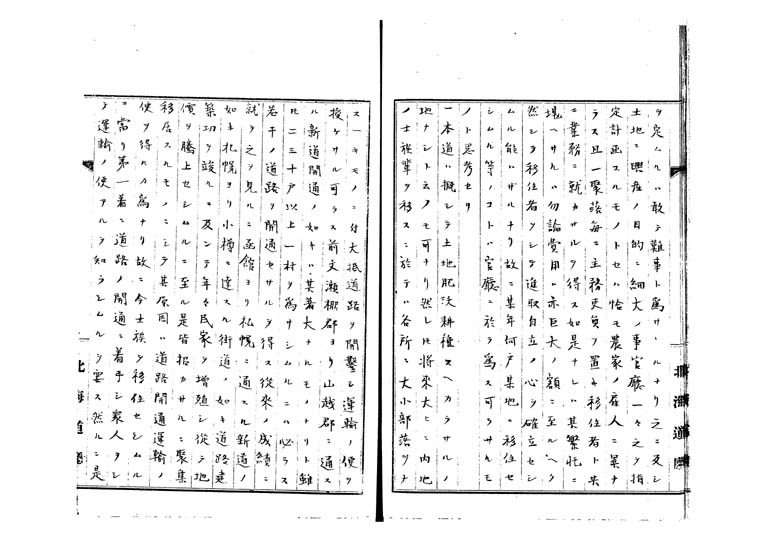 ヲ定ムルハ敢テ難事ト為サヽルナリ之ニ反シ
土地ニ興産ノ目的ニ細大ノ事官廳一々之ヲ指
定計画スルモノトセハ恰モ農家ノ雇人ニ異ナ
ラス且一聚落毎ニ主務吏員ヲ置キ移住者ト共
ニ業務ニ就カサルヲ得ス如是ナレハ其繁忙ニ
堪ヘサルハ勿論費用ハ亦巨大ノ額ニ至ルヘク
然シテ移住者ヲシテ進取自立ノ心ヲ確立セシ
ムル能ハサルナリ故ニ某年何戸某地ニ移住セ
シムル等ノコトハ官廳ニ於テ為スヲ可ラサルモ
ノト思考セリ
一本道ハ概シテ土地肥沃耕種スヘカラサルノ
地ナシト云フモ可ナリ然レハ将来大ヒニ内地
ノ士族輩ヲ移スニ於テハ各所ニ大小部落ヲナ
北海道廳
スヘキモノニ付大抵道路ヲ開鑿シ運輸ノ便ヲ
授ケサル可ラス前文瀬棚郡ヨリ山越郡ニ通ス
ル新道開通ノ如キハ其著大ナルモノナリト雖
ﾓ二三十戸以上一村ヲ為サシムルニハ必ラス
若干ノ道路ヲ開通セサルヲ得ス従来ノ成績ニ
就テ之ヲ見ルニ函館ヨリ札幌ニ通スル新道ノ
如キ札幌ヨリ小樽ニ達スル街道ノ如キ道路建
築功ヲ竣ルニ及ンテ年々民家ヲ増殖シ従テ地
價ヲ騰上セシムルニ至ル是皆招カサルニ聚集
移居スルモノニシテ其原因ハ道路開通運輸ノ
便ヲ得ルカ為ナリ故ニ今士族ヲ移住セシムル
ニ當リ第一着ニ道路ノ開通ニ着手シ衆人ヲシ
テ運輸ノ便アルヲ知ラシムルヲ要ス然ルニ是
北海道廳